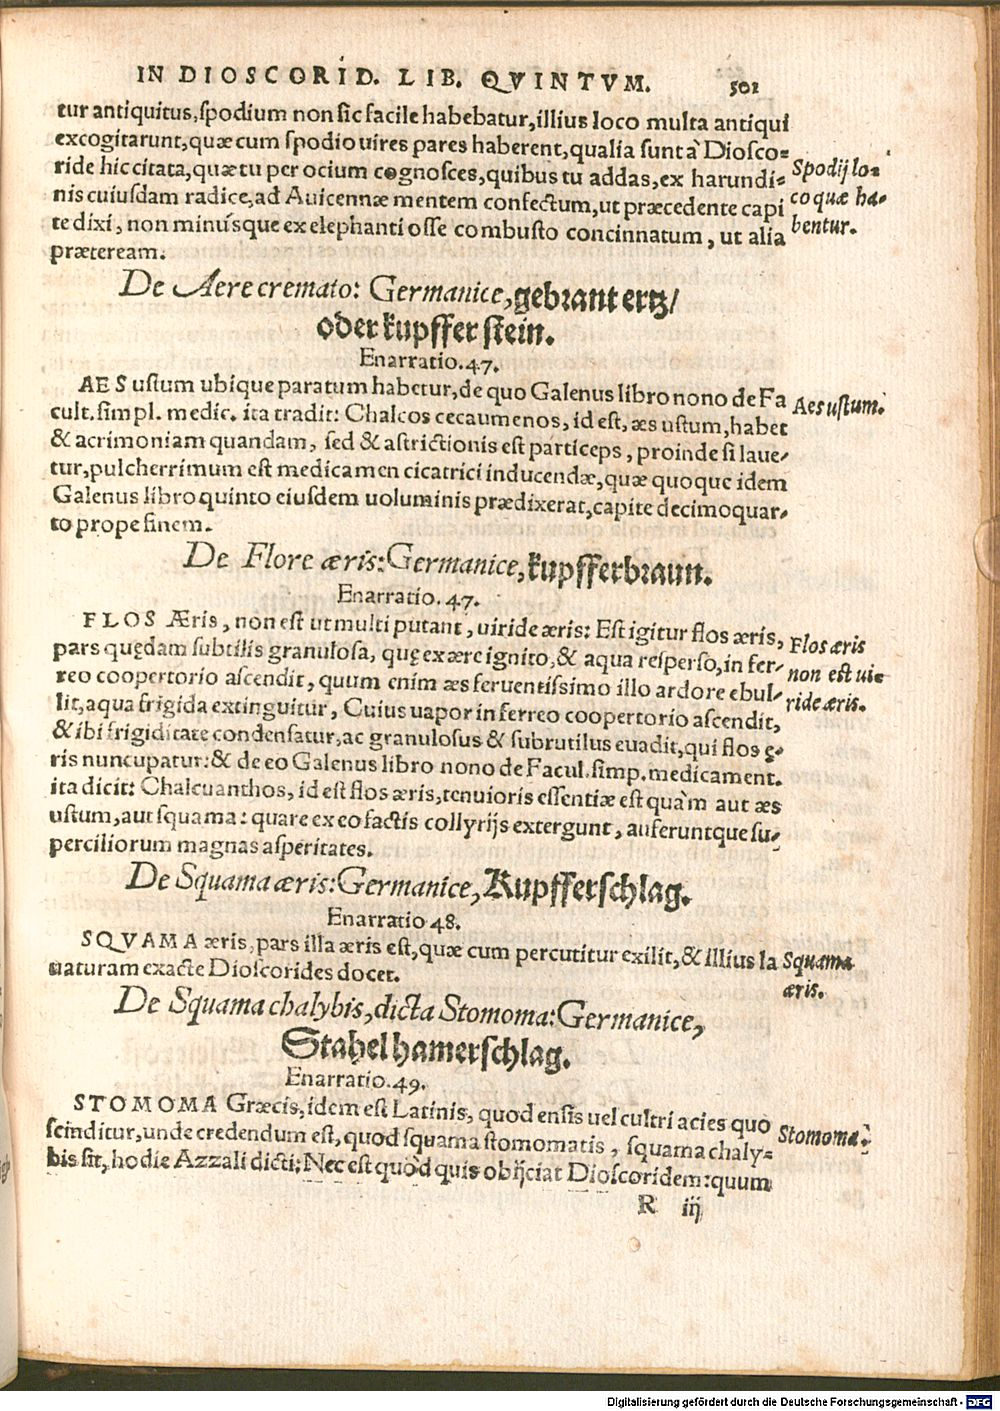 IN DIOSCORID. LIB. QVINTVM. 501
tur antiquitus, spodium non sic facile habebatur, illius loco multa antiqui
excogitarunt, quæ cum spodio uires pares haberent, qualia sunt à Diosco-
ride hic citata, quæ tu per ocium cognosces, quibus tu addas, ex harundi-
nis cuiusdam radice, ad Auicennæ mentem confectum, ut præcedente capi
te dixi, non minúsque ex elephanti osse combusto concinnatum, ut alia
præteream.
Spodij lo-
co quæ ha-
bentur.
De Aere cremato: Germanice, gebrant ertz/
oder kupffer stein.
Enarratio. 47.
AES ustum ubique paratum habetur, de quo Galenus libro nono de Fa
cult. simpl. medic. ita tradit: Chalcos cecaumenos, id est, æs ustum, habet
& acrimoniam quandam, sed & astrictionis est particeps, proinde si laue-
tur, pulcherrimum est medicamen cicatrici inducendæ, quæ quoque idem
Galenus libro quinto eiusdem uoluminis prædixerat, capite decimoquar-
to prope finem.
Aes ustum.
De Flore æris: Germanice, kupfferbraun.
Enarratio. 47.
FLOS Æris, non est ut multi putant, uiride æris: Est igitur flos æris,
pars quędam subtilis granulosa, quę ex ære ignito, & aqua resperso, in fer-
reo coopertorio ascendit, quum enim æs feruentissimo illo ardore ebul-
lit, aqua frigida extinguitur, Cuius uapor in ferreo coopertorio ascendit,
& ibi frigiditate condensatur, ac granulosus & subrutilus euadit, qui flos ę-
ris nuncupatur: & de eo Galenus libro nono de Facul. simp. medicament.
ita dicit: Chalcuanthos, id est flos æris, tenuioris essentiæ est quàm aut æs
ustum, aut squama: quare ex eo factis collyrijs extergunt, auferuntque su-
perciliorum magnas asperitates.
Flos æris
non est ui-
ride æris.
De Squama æris: Germanice, Kupfferschlag.
Enarratio 48.
SQVAMA æris, pars illa æris est, quæ cum percutitur exilit, & illius la
uaturam exacte Dioscorides docet.
Squama
æris.
De Squama chalybis, dicta Stomoma: Germanice,
Stahel hamerschlag.
Enarratio. 49.
STOMOMA Græcis, idem est Latinis, quod ensis uel cultri acies quo
scinditur, unde credendum est, quod squama stomomatis, squama chaly-
bis sit, hodie Azzali dicti: Nec est quòd quis obijciat Dioscoridem: quum
Stomoma.
R iij
Digitalisierung gefördert durch die Deutsche Forschungsgemeinschaft - DFG